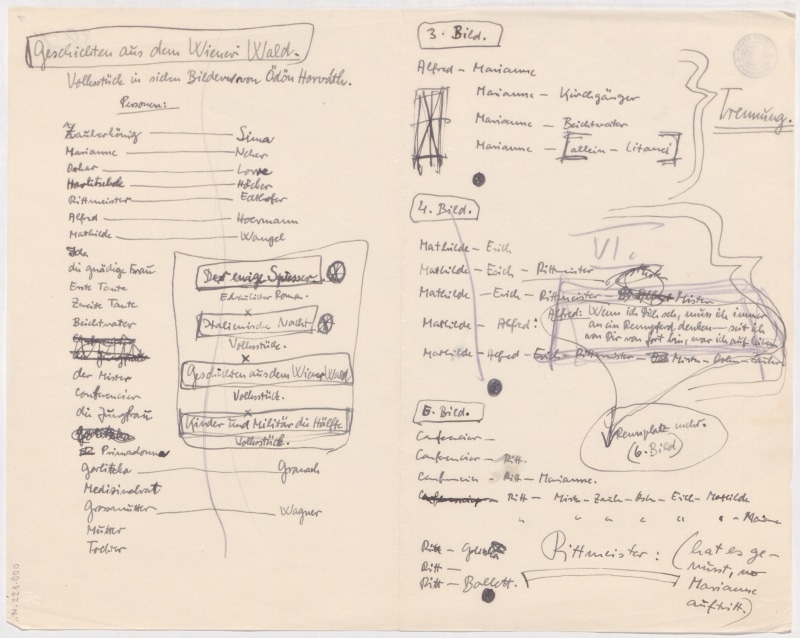 Geschichten aus dem Wiener Wald.
Volksstück in sieben Bildern von Ödön Horváth.
Personen:
Zauberkönig — Sima
Marianne — Neher
Oskar — Lorre
Havlitschek — Höcker
Rittmeister — Edthofer
Alfred — Hoermann
Mathilde — Wangel
Ida
die gnädige Frau
Erste Tante
Zweite Tante
Beichtvater
der Mister
Conferencier
die Jungfrau
Primadonna
Gorlitzka — Granach
Medizinalrat
Grossmutter — Wagner
Mutter
Tochter
Der ewige Spiesser.
Erbaulicher Roman.
×
Italienische Nacht
Volksstück.
×
Geschichten aus dem Wiener Wald
Volksstück.
×
Kinder und Militär die Hälfte
Volksstück.
N. 221.000
3. Bild.
Alfred – Marianne
Marianne – Kirchgänger
Marianne – Beichtvater
Marianne – [allein – Litanei]
Trennung.
4. Bild.
VI.
Mathilde – Erich
Mathilde – Erich – Rittmeister
Mathilde – Erich – Rittmeister – Mister
Mathilde – Alfred:
Alfred: Wenn ich Dich seh, muss ich immer
an ein Rennpferd denken – seit ich
von Dir fort bin, war ich auf keinem
Mathilde – Alfred – Erich – Rittmeister –
Rennplatz mehr.
(6. Bild)
5. Bild.
Conferencier –
Conferencier – Ritt.
Conferencier – Ritt – Marianne.
Ritt – Mister – Zaub – Osk – Erich – Mathilde
" " " " " – Marianne
Ritt –
Ritt –
Ritt – Ballett.
Rittmeister: (hat es ge-
wusst, wo
Marianne
auftritt.)